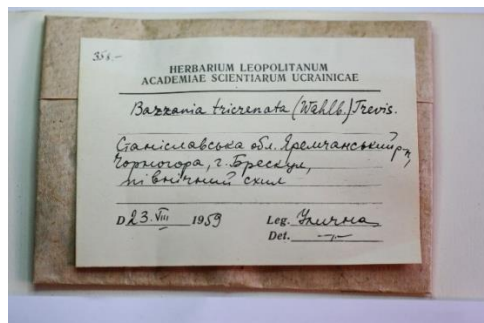 358.-
HERBARIUM LEOPOLITANUM
ACADEMIAE SCIENTIARUM UCRAINICAE
Bazzania tricrenata (Wahlb.) Trevis.
Станіславська обл. Яремчанський рн,
Чорногора, г. Брескул,
північний схил
D 23. VIII 1959 Leg. Улична
Det. —"—